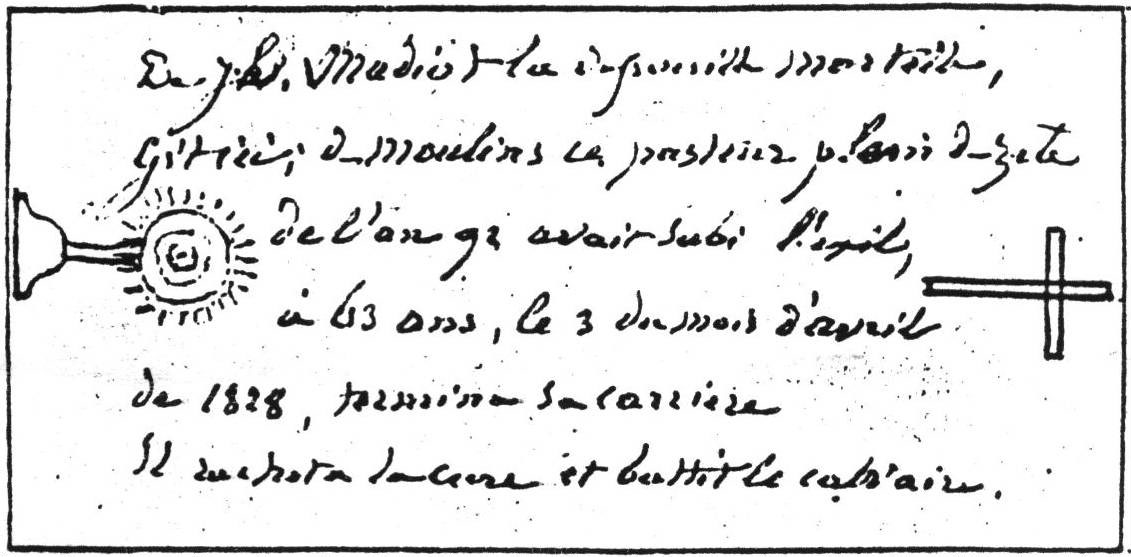 De J.B. Madiot la dépouille mortelle,
Gît ici; de moulins ce pasteur plein de zele
de l'an 92 avait subi l'exil,
à 63 ans, le 3 du mois d'avril
de 1828, termina sa carriere
Il racheta la cure et battit le calvaire.